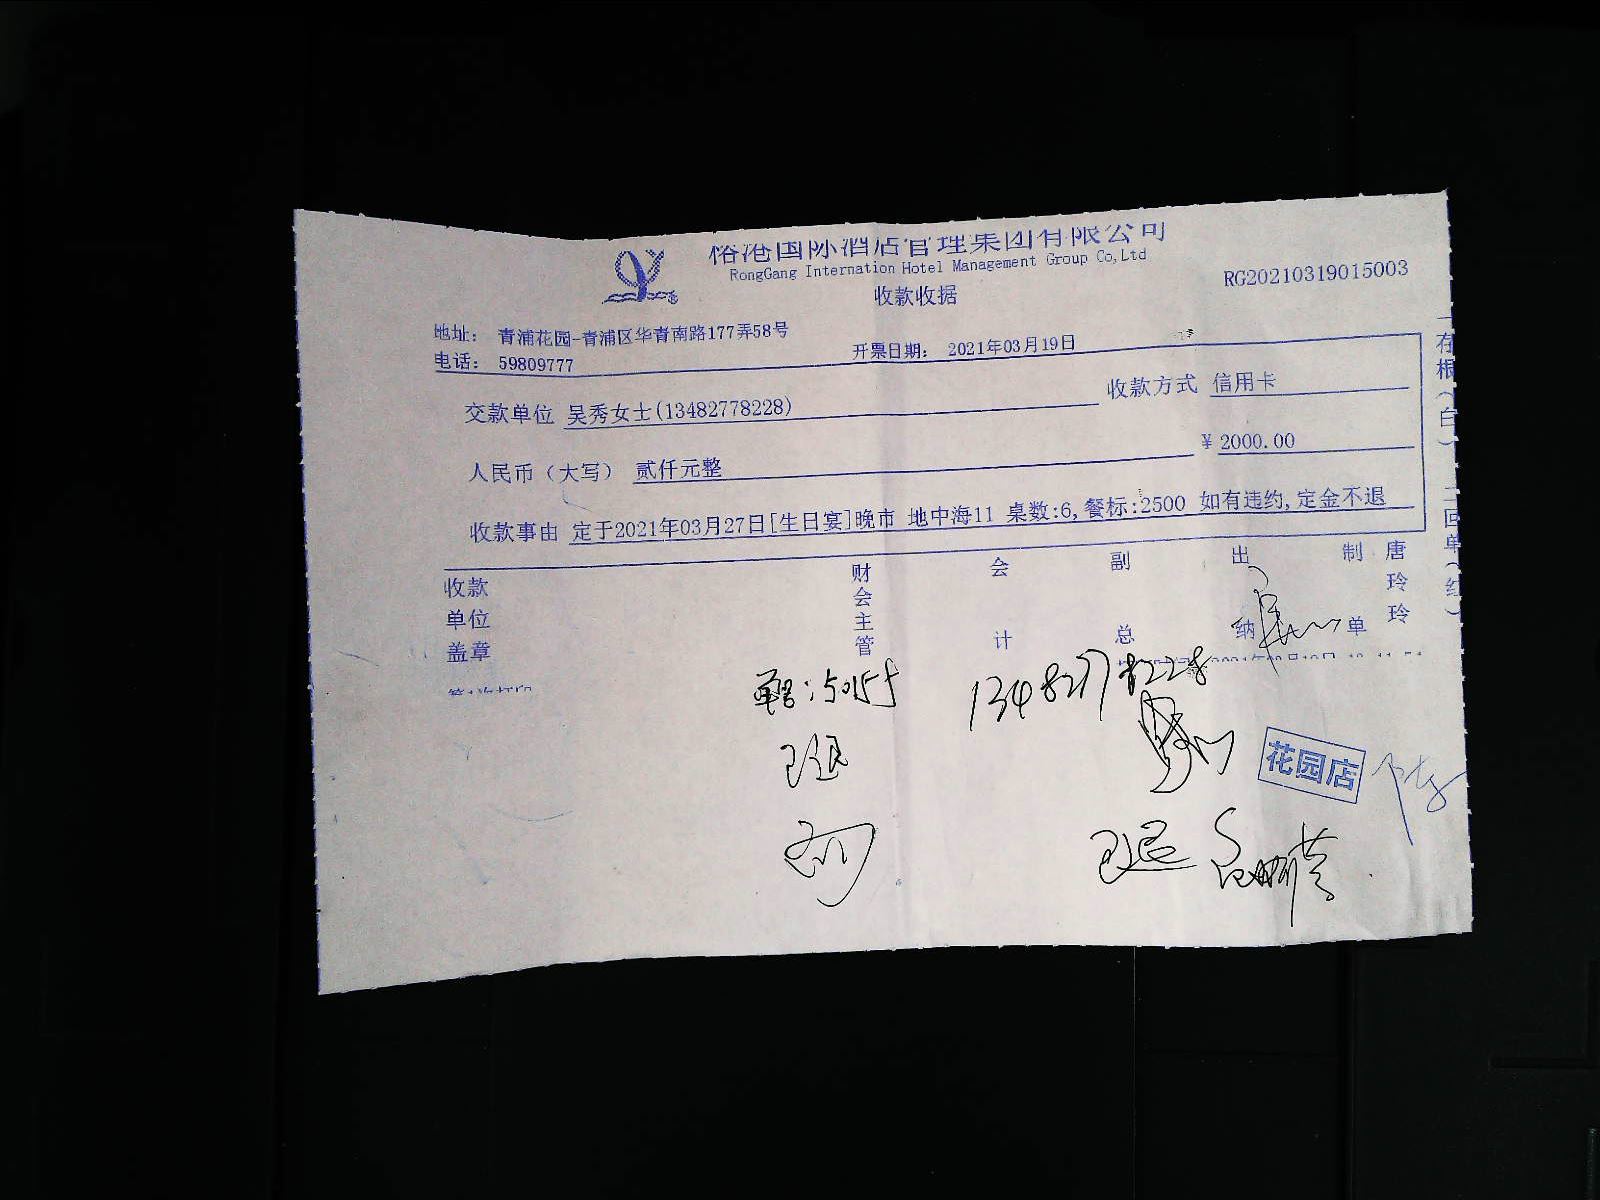 裕港国际酒店管理集团有限公司
RongGang Internation Hotel Management Group Co,Ltd
收款收据
RG20210319015003
地址: 青浦花园-青浦区华青南路177弄58号
电话: 59809777
开票日期: 2021年03月19日
交款单位 吴秀女士(13482778228)
收款方式 信用卡
人民币(大写) 贰仟元整
¥ 2000.00
收款事由 定于2021年03月27日[生日宴]晚市 地中海11 桌数:6,餐标:2500 如有违约,定金不退
收款单位盖章
财会主管
会计
副总
出纳
制单
唐玲玲
一存根(白)
二回单(红)
第1次打印
花园店